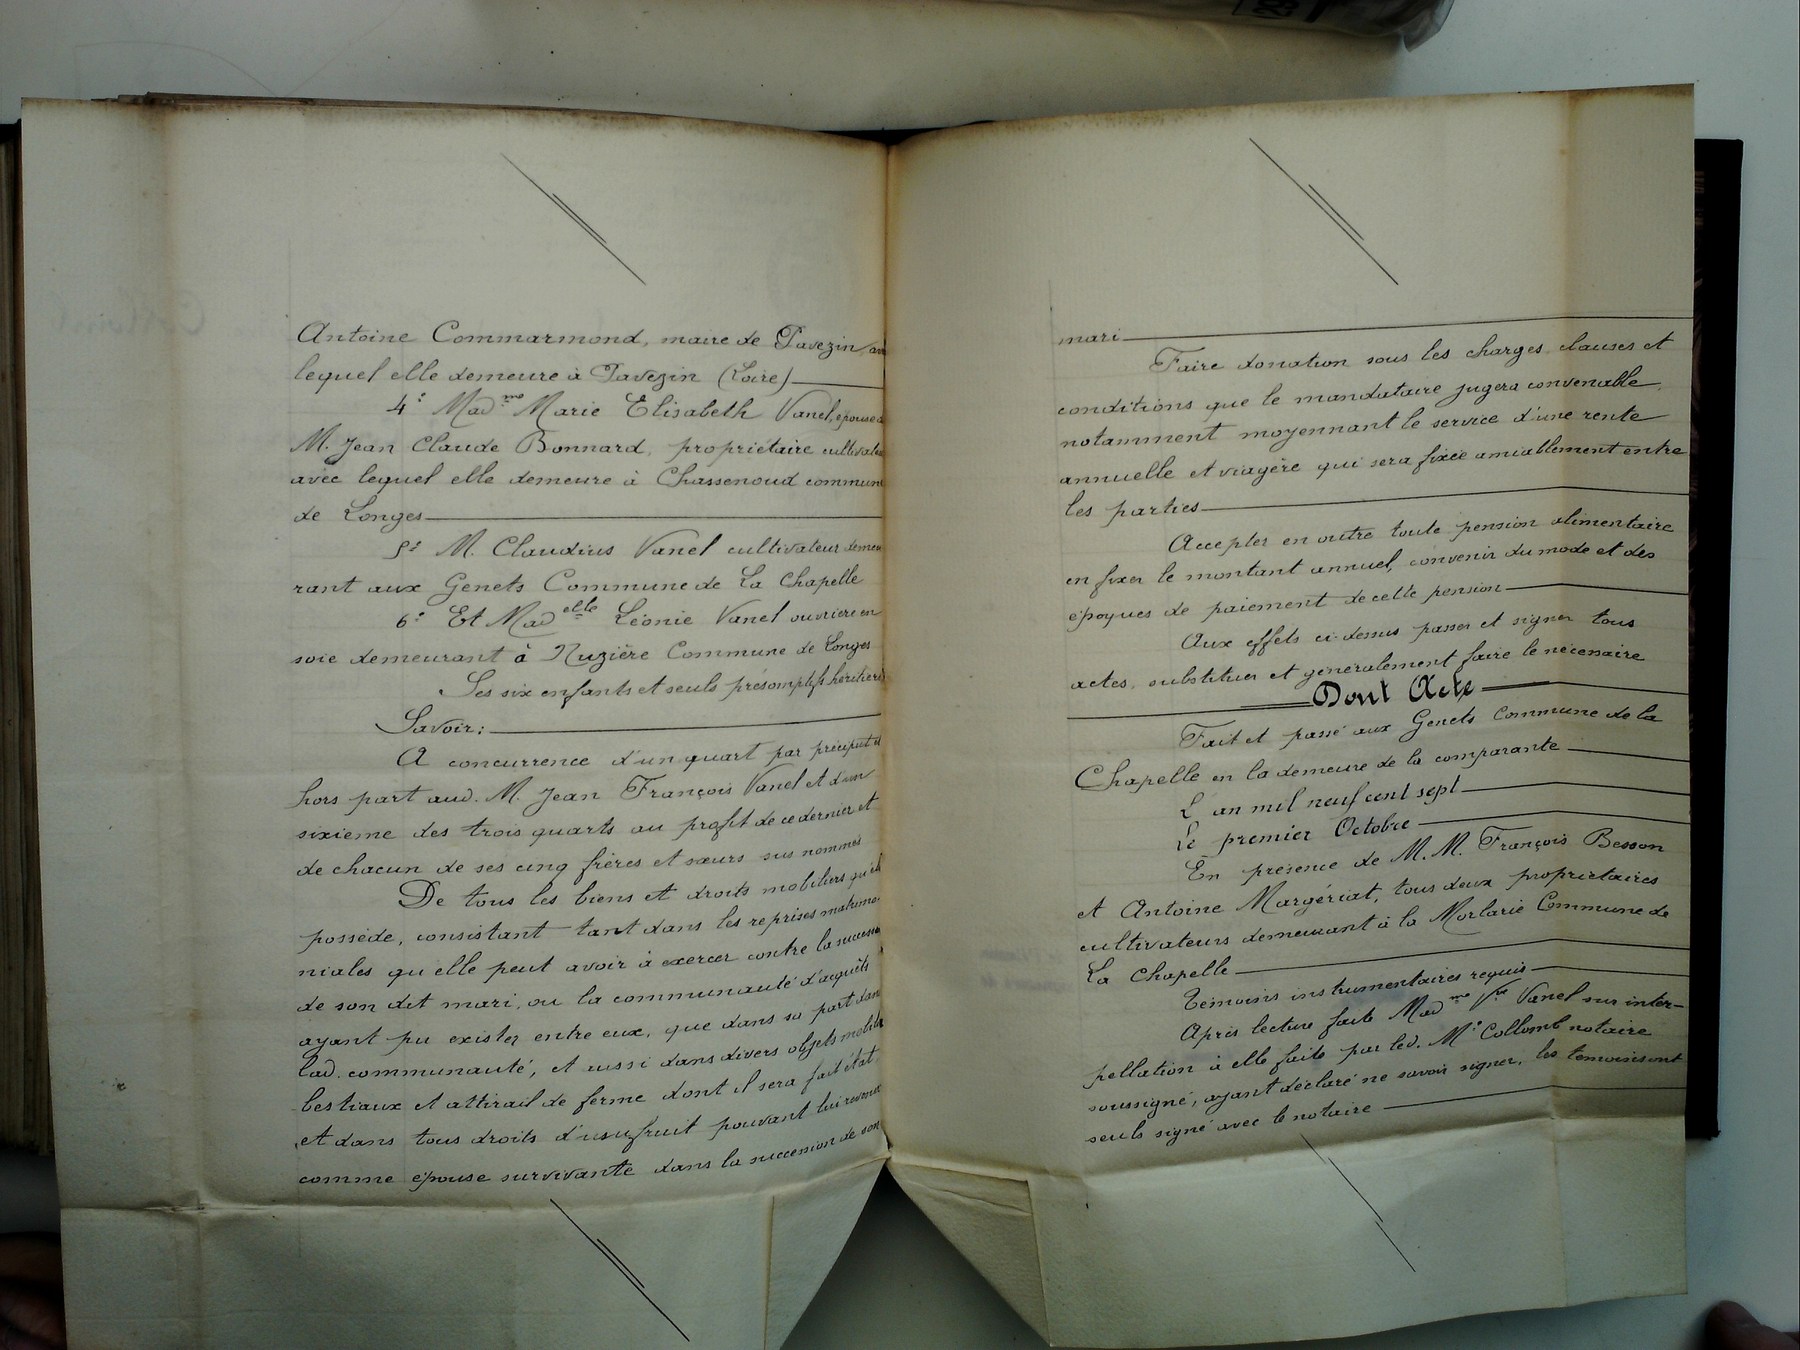 Antoine Commarmond, maire de Pavezin, av
lequel elle demeure à Pavezin (Loire)
4° Mad.me Marie Elisabeth Vanel, épouse d
M. Jean Claude Bonnard, propriétaire cultivate
avec lequel elle demeure à Chassenoud commune
de Longes
5° M. Claudius Vanel cultivateur demeu
rant aux Genets Commune de La Chapelle
6° Et Mad elle Léonie Vanel ouvrière en
soie demeurant à Nuzière Commune de Longes
Ses six enfants et seuls présomptifs héritiers
Savoir:
A concurrence d'un quart par préciput et
hors part aud. M. Jean François Vanel et d'un
sixième des trois quarts au profit de ce dernier et
de chacun de ses cinq frères et sœurs sus nommés
De tous les biens et droits mobiliers qu'elle
possède, consistant tant dans les reprises matrimo-
niales qu'elle peut avoir à exercer contre la success
de son dit mari, ou la communauté d'acquêts
ayant pu exister entre eux, que dans sa part dans
lad. communauté, et aussi dans divers objets mobile
bestiaux et attirail de ferme dont il sera fait état,
et dans tous droits d'usufruit pouvant lui revenir
comme épouse survivante dans la succession de son
mari
Faire donation sous les charges, clauses et
conditions que le mandataire jugera convenable,
notamment moyennant le service d'une rente
annuelle et viagère qui sera fixée amiablement entre
les parties
Accepter en outre toute pension alimentaire
en fixer le montant annuel, convenir du mode et des
époques de paiement de cette pension
Aux effets ci-dessus passer et signer tous
actes, substituer et généralement faire le nécessaire
Dont Acte
Fait et passé aux Genets Commune de la
Chapelle en la demeure de la comparante
L'an mil neuf cent sept
Le premier Octobre
En présence de M.M. François Besson
et Antoine Margériat, tous deux propriétaires
cultivateurs demeurant à la Morlarie Commune de
La Chapelle
Témoins instrumentaires requis
Après lecture faite Mad me Vve Vanel sur inter-
pellation à elle faite par led. Me Collomb notaire
soussigné, ayant déclaré ne savoir signer, les témoins ont
seuls signé avec le notaire